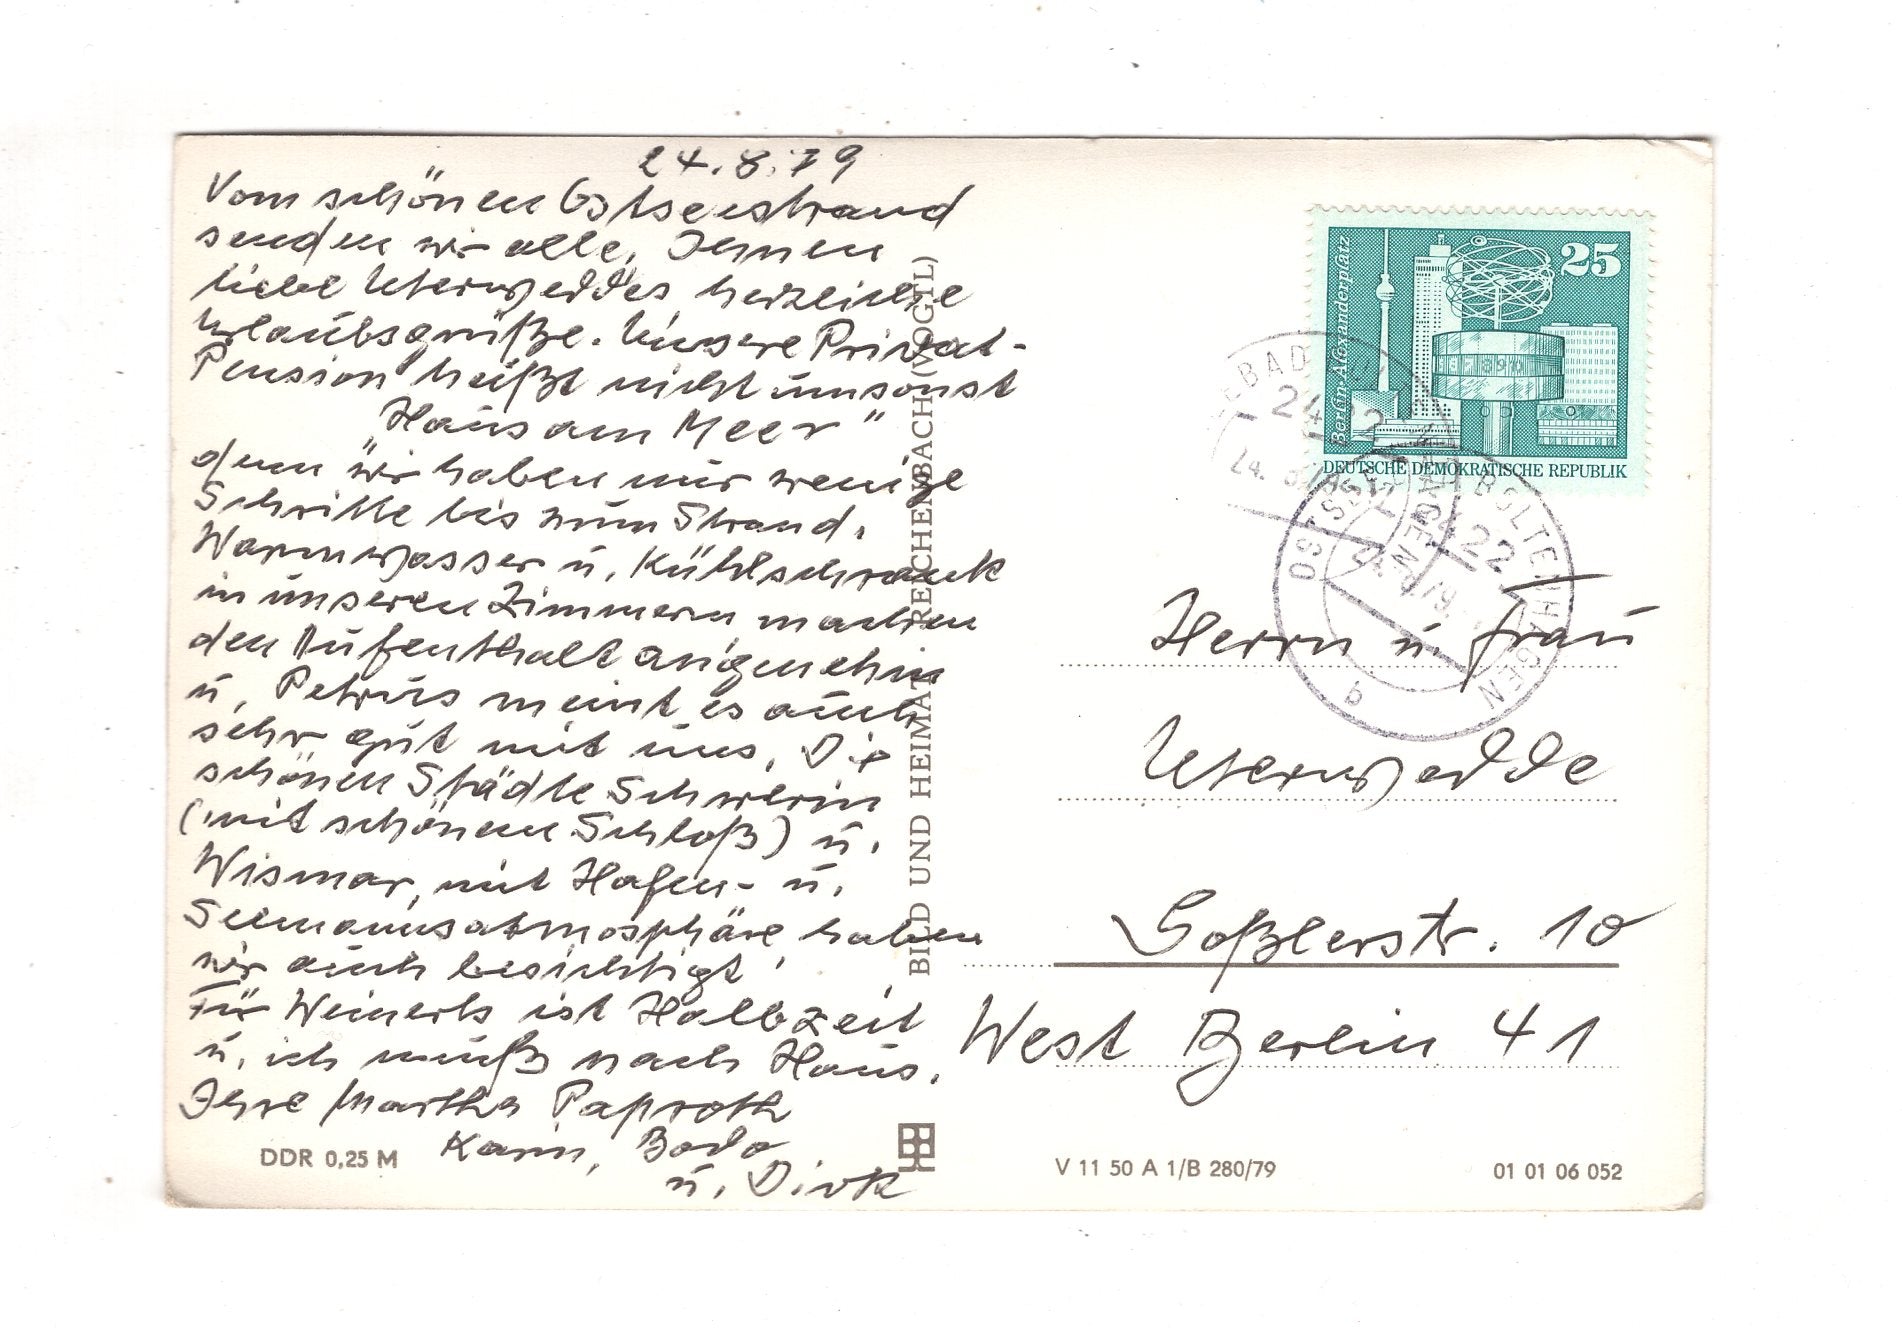 24.8.79
Vom schönen Ostseestrand
senden wir alle, Ihnen
liebe Uterweddes herzliche
Urlaubsgrüße. Unsere Privat-
Pension heißt nicht umsonst
"Haus am Meer"
denn wir haben nur wenige
Schritte bis zum Strand.
Warmwasser u. Kühlschrank
in unseren Zimmern machen
den Aufenthalt angenehm
u. Petrus meint es auch
sehr gut mit uns. Die
schönen Städte Schwerin
(mit schönem Schloß) u.
Wismar, mit Hafen- u.
Seemannsatmosphäre haben
wir auch besichtigt.
Für Weinerts ist Halbzeit
u. ich muß nach Haus.
Ihre Martha Paproth
Karin, Bodo
u. Dirk
DDR 0,25 M
BILD UND HEIMAT REICHENBACH (VOGTL)
Berlin-Alexanderplatz
25
DEUTSCHE DEMOKRATISCHE REPUBLIK
OSTSEEBAD BOLTENHAGEN
2422
b
Herrn u. Frau
Uterwedde
Goßlerstr. 10
West Berlin 41
V 11 50 A 1/B 280/79
01 01 06 052